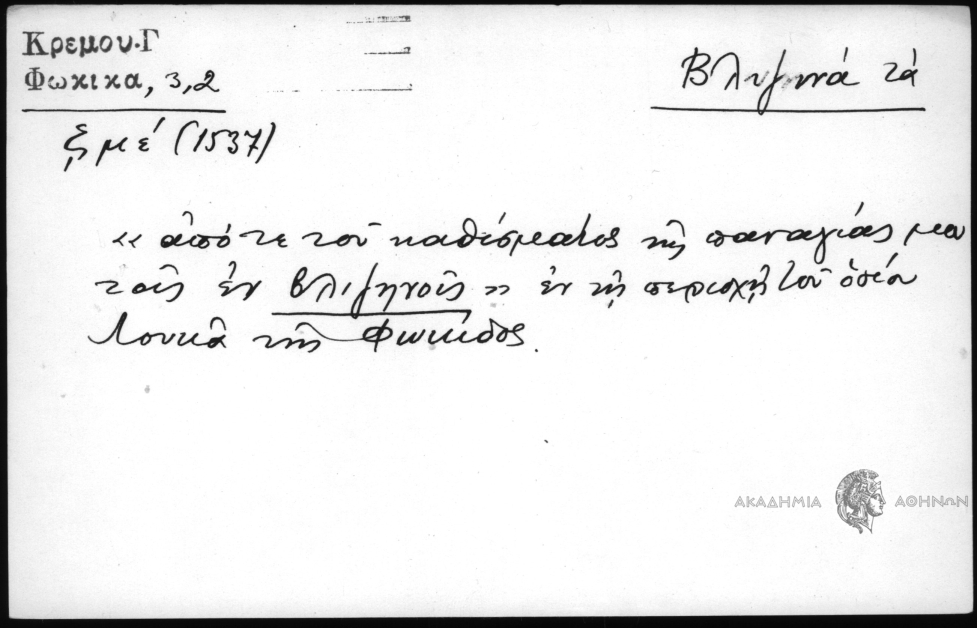 Κρεμου.Γ
Φωκικα, 3,2
Βλυζηνά τά
ζμέ (1537)
« ἀπό τε τοῦ καθίσματος τῆς παναγίας μου
τοῖς ἐν Βλιζηνοῖς » ἐν τῇ περιοχῇ τοῦ ὁσίου
Λουκᾶ τῆς Φωκίδος.
ΑΚΑΔΗΜΙΑ ΑΘΗΝΩΝ